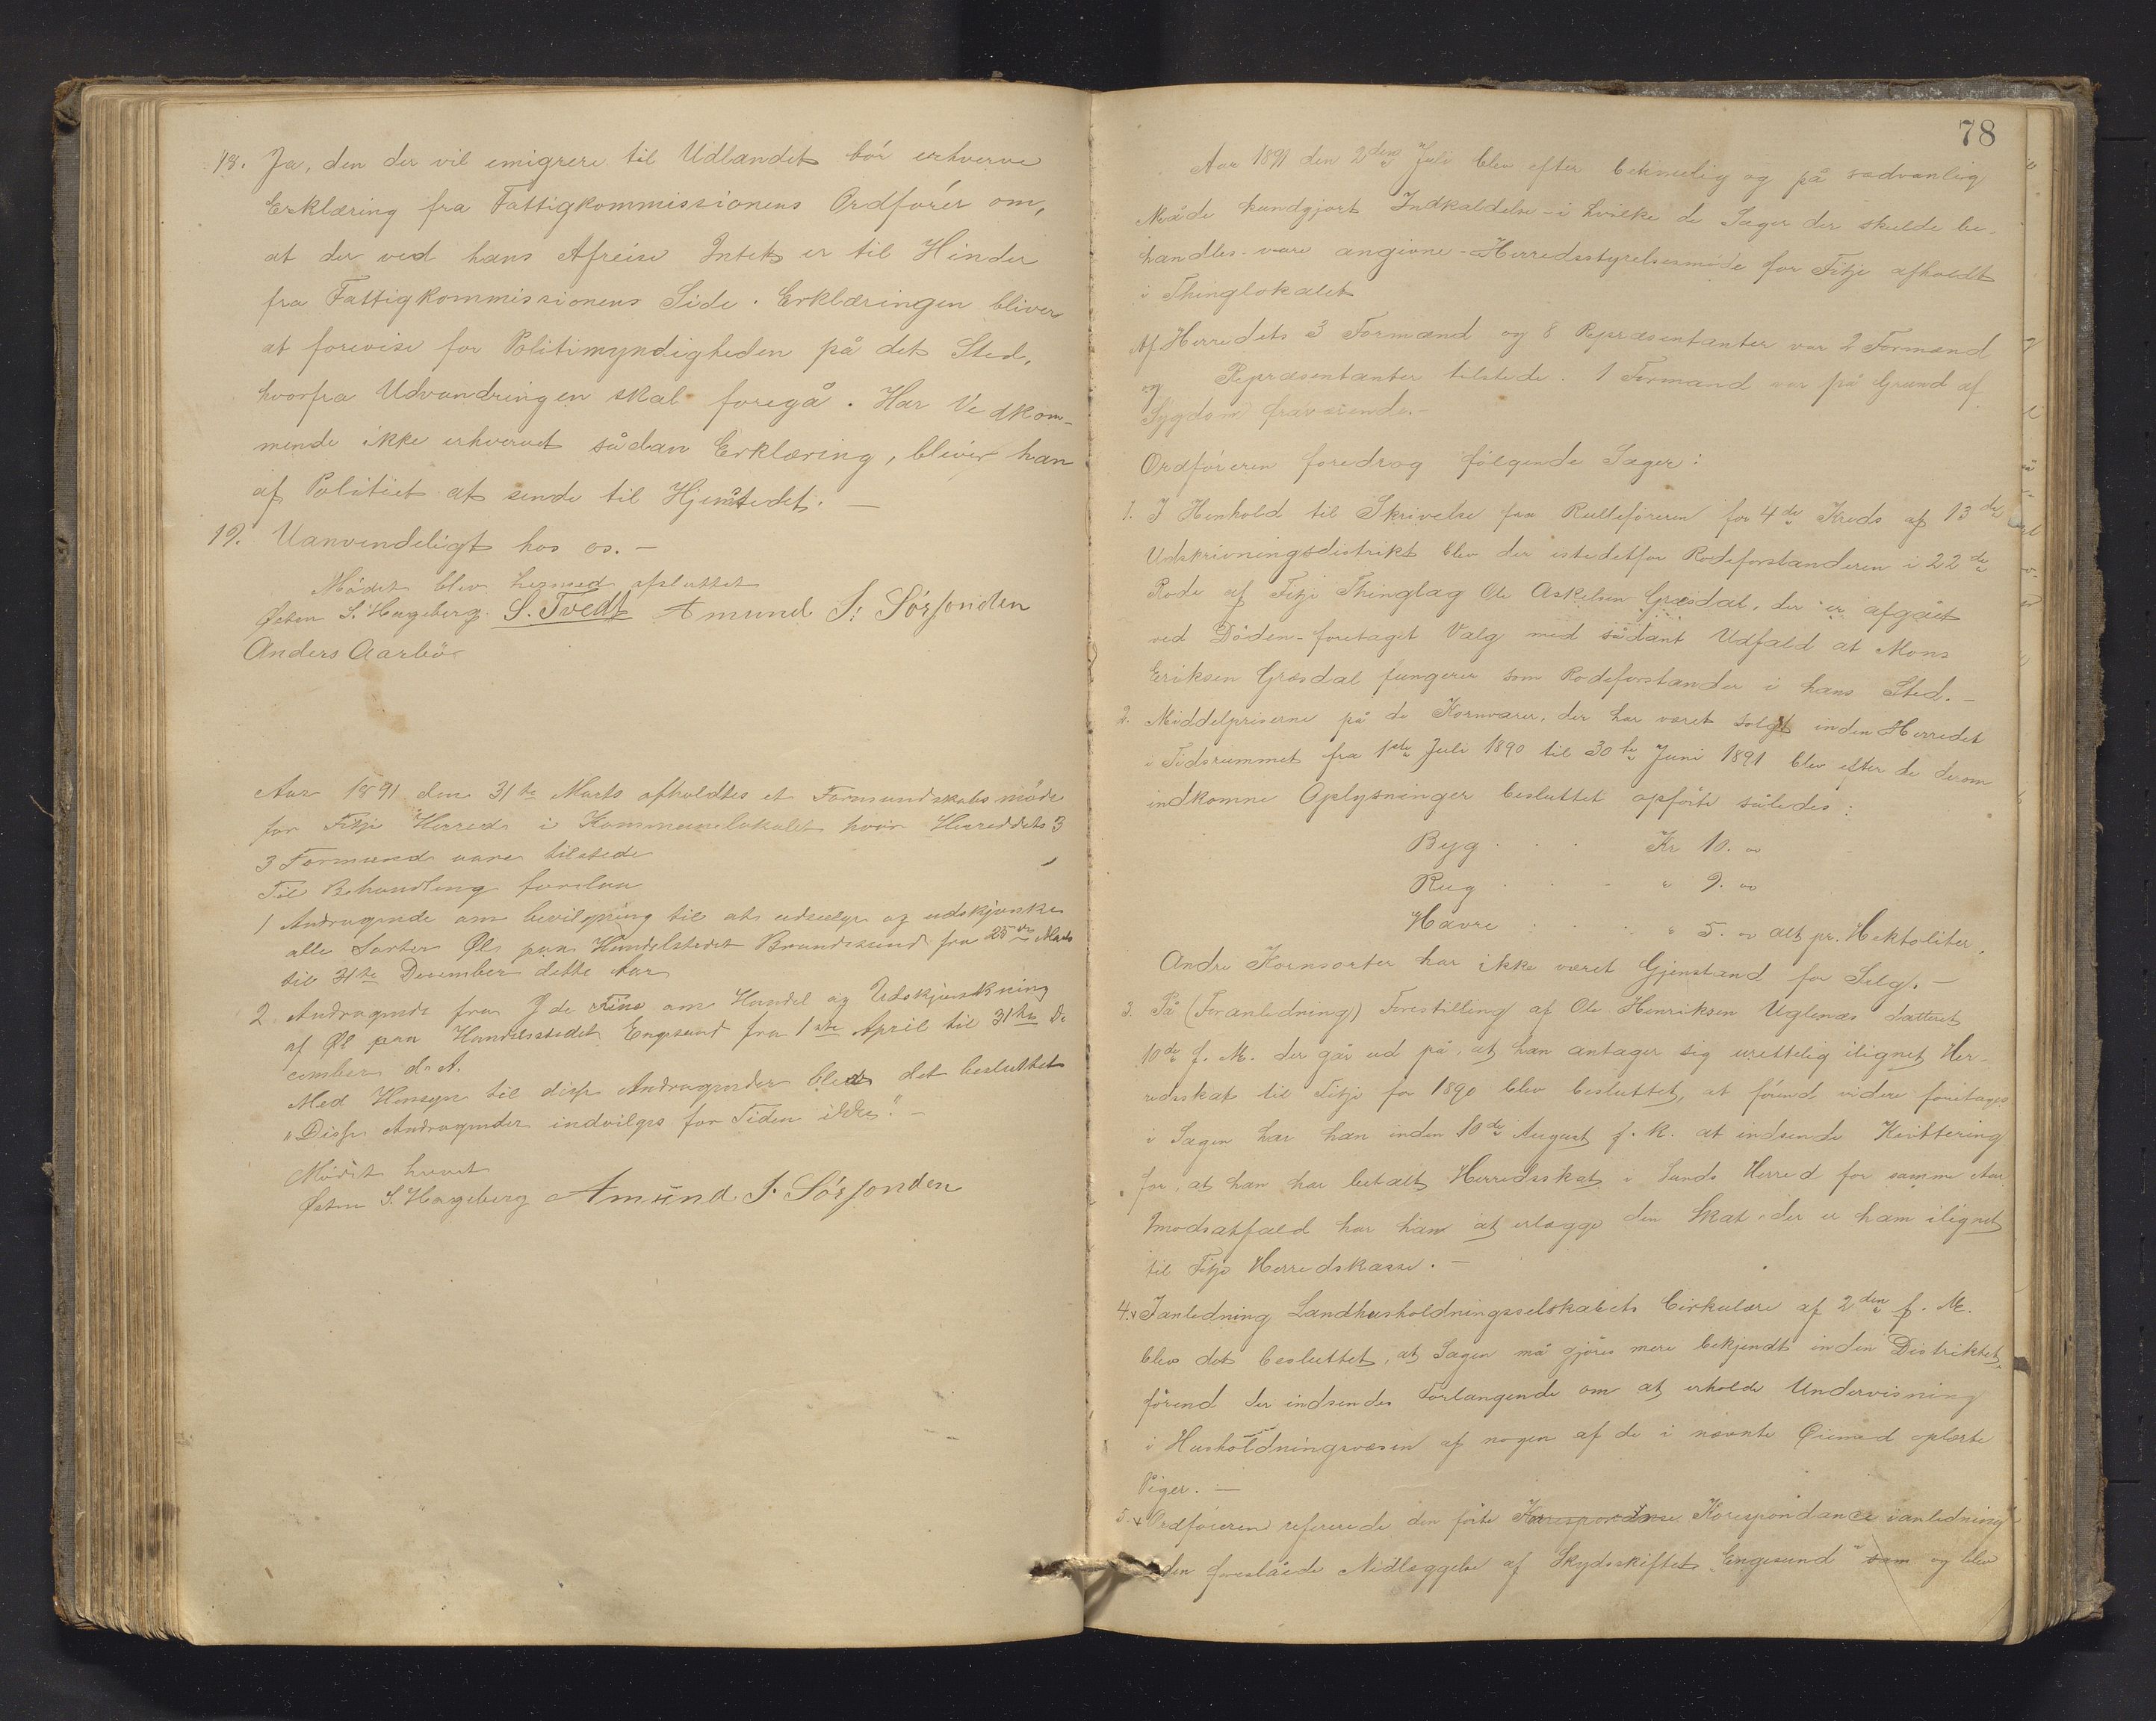 18. Ja, den der vil emigrere til Udlandet bör erhverve
Erklæring fra Fattigkommissionens Ordförer om,
at der ved hans Afreise Intet er til Hinder
fra Fattigkommissionens Side. Erklæringen bliver
at forevise for Politimyndigheden på det Sted,
hvorfra Udvandringen skal foregå. Har Vedkom-
mende ikke erhvervet sådan Erklæring, bliver han
af Politiet at sende til Hjemstedet. —
19. Uanvendeligt hos os. —
Mödet blev hermed afsluttet
Østen S. Hageberg. S. Tvedt Amund J. Sörfonden
Anders Aarbö
Aar 1891 den 31te Marts afholdtes et Formandskabsmöde
for Fitje Herred i Kommunelokalet hvor Herredets 3
3 Formænd vare tilstede
Til Behandling forelaa
1 Andragende om bevilgning til at udsælge og udskjænke
alle Sorter Øl paa Handelstedet Brandasund fra 25de Marts
til 31te December dette Aar
2. Andragende fra J de Fine om Handel og Udskjænkning
af Øl paa Handelsstedet Engesund fra 1ste April til 31te De
cember d. A.
Med Hensyn til disse Andragender blev det besluttet
"Disse Andragender indvilges for Tiden ikke." —
Mödet hævet
Østen S. Hageberg Amund J. Sörfonden
78
Aar 1891 den 2den Juli blev efter betimelig og på sædvanlig
Måde kundgjort Indkaldelse - i hvilke de Sager der skulde be-
handles vare angivne - Herredsstyrelsesmöde for Fitje afholdt
i Thinglokalet
Af Herredets 3 Formænd og 8 Repræsentanter var 2 Formænd
og Repræsentanter tilstede. 1 Formand var på Grund af
Sygdom fraværende. -
Ordföreren foredrog fölgende Sager:
1. I Henhold til Skrivelse fra Rulleföreren for 4de Kreds af 13de
Udskrivningsdistrikt blev der istedetfor Rodeforstanderen i 22de
Rode af Fitje Thinglag Ole Askelsen Græsdal, der er afgået
ved Döden - foretaget Valg med sådant Udfald at Mons
Eriksen Græsdal fungerer som Rodeforstander i hans Sted. -
2. Middelpriserne på de Kornvarer, der har været solgt inden Herredet
i Tidsrummet fra 1ste Juli 1890 til 30te Juni 1891 blev efter de derom
indkomne Oplysninger besluttet opförte således:
Byg . . . Kr 10. 00
Rug . . . " 9. 00
Havre . . . " 5. 00 alt pr. Hektoliter.
Andre Kornsorter har ikke været Gjenstand for Salg. -
3. På (Foranledning) Forestilling af Ole Henriksen Uglenæs datteret
10de f. M. der går ud på, at han antager sig urettelig ilignet Her-
redsskat til Fitje for 1890 blev besluttet, at förend videre foretages
i Sagen har han inden 10de August f. k. at indsende Kvittering
for, at han har betalt Herredsskat i Sunds Herred for samme Aar.
Imodsatfald har han at erlægge den Skat, der er ham ilignet
til Fitje Herredskasse. -
4. Ianledning Landhusholdningsselskabets Cirkulære af 2den f. M.
blev det besluttet, at Sagen må gjöres mere bekjendt inden Distriktet,
förend der indsendes Forlangende om at erholde Undervisning
i Husholdningsvæsen af nogen af de i nævnte Øiemed oplærte
Piger. —
5. Ordföreren refererede den förte Korrespondense Korespondance ianledning
den foreslåede Nedlæggelse af Skydsskiftet "Engesund" som og blev